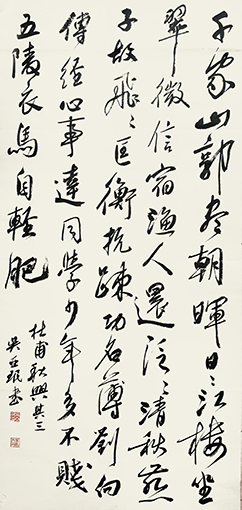 千家山郭尽朝暉日〻江楼坐
翠微信宿漁人還泛〻清秋燕
子故飛〻匡衡抗疎功名薄劉向
傅经心事違同学少年多不賤
五陵衣馬自軽肥
杜甫秋興其三
吴 書